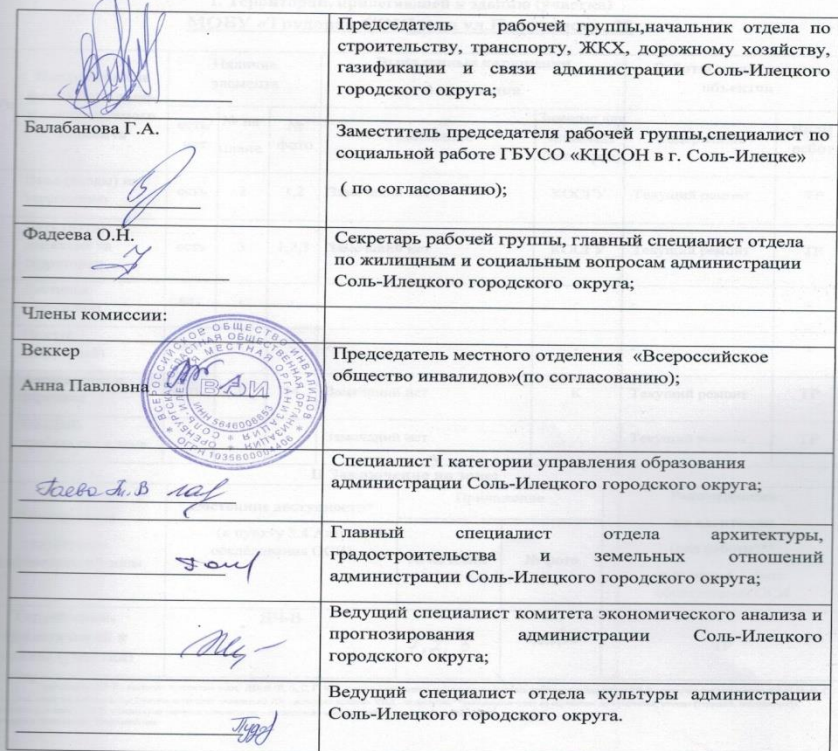 Председатель рабочей группы,начальник отдела по
строительству, транспорту, ЖКХ, дорожному хозяйству,
газификации и связи администрации Соль-Илецкого
городского округа;
Балабанова Г.А.
Заместитель председателя рабочей группы,специалист по
социальной работе ГБУСО «КЦСОН в г. Соль-Илецке»
( по согласованию);
Фадеева О.Н.
Секретарь рабочей группы, главный специалист отдела
по жилищным и социальным вопросам администрации
Соль-Илецкого городского округа;
Члены комиссии:
Веккер
Анна Павловна
Председатель местного отделения «Всероссийское
общество инвалидов»(по согласованию);
ВСЕРОССИЙСКОЕ ОБЩЕСТВО ИНВАЛИДОВ
ВОИ
Гаева Т.В
Специалист I категории управления образования
администрации Соль-Илецкого городского округа;
Главный специалист отдела архитектуры,
градостроительства и земельных отношений
администрации Соль-Илецкого городского округа;
Ведущий специалист комитета экономического анализа и
прогнозирования администрации Соль-Илецкого
городского округа;
Ведущий специалист отдела культуры администрации
Соль-Илецкого городского округа.